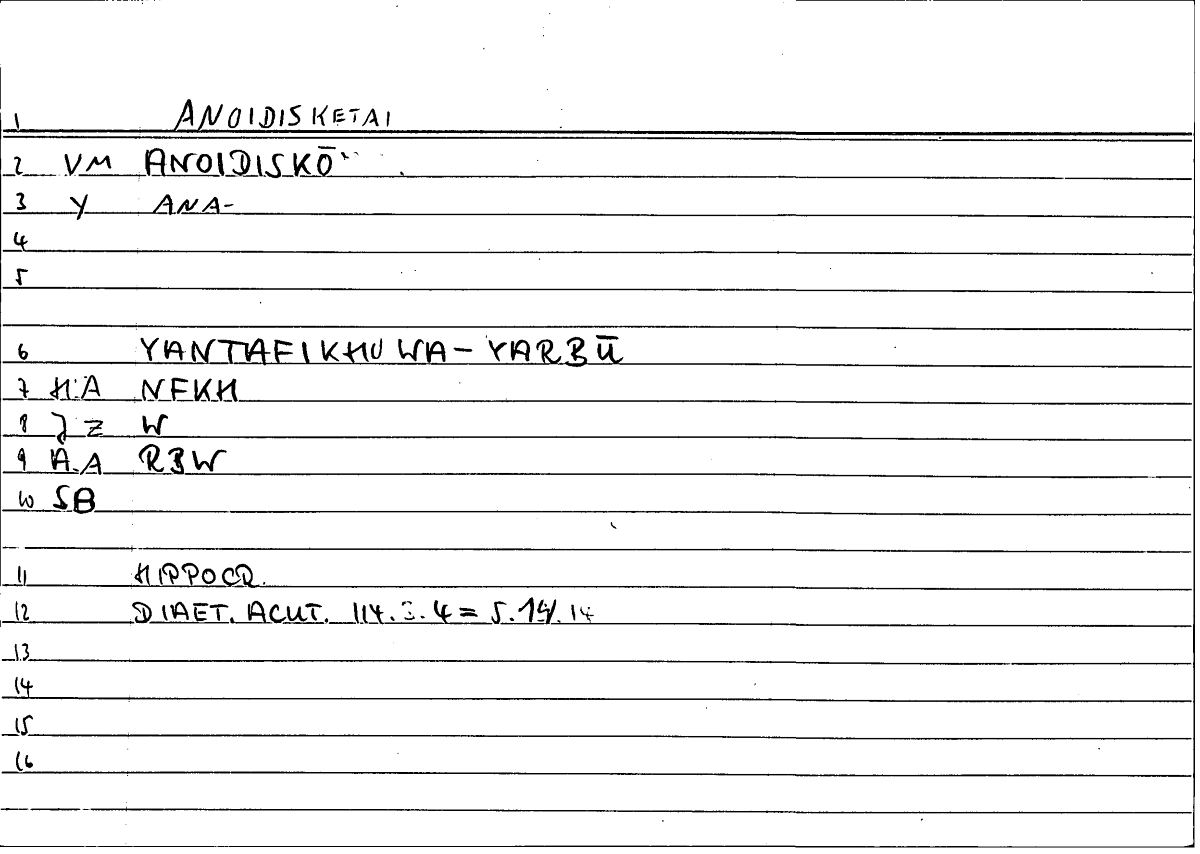 1 ANOIDISKETAI
2 VM ANOIDISKŌ
3 Y ANA-
4
5
6 YANTAFIKHU WA-YARBŪ
7 H.A NFKH
8 J Z W
9 A.A RBW
10 SB
11 HIPPOCR.
12 DIAET. ACUT. 114.3.4 = 5.14.14
13
14
15
16